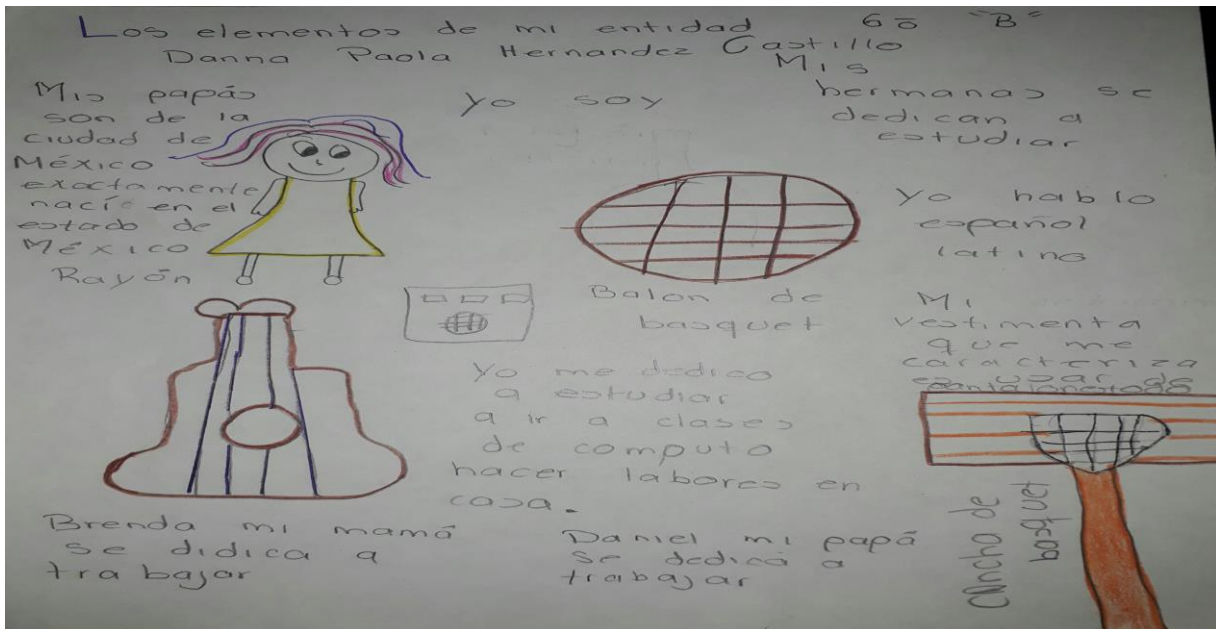 Los elementos de mi entidad 6º "B"
Danna Paola Hernandez Castillo
Mis papás
son de la
ciudad de
México
exactamente
nací en el
estado de
México
Rayón
yo soy
Mis
hermanas se
dedican a
estudiar
Yo hablo
español
latino
Balon de
basquet
Mi
vestimenta
que me
caracteriza
es usar de
Yo me dedico
a estudiar
a ir a clases
de computo
hacer labores en
casa.
Brenda mi mamá
se didica a
trabajar
Daniel mi papá
se dedica a
trabajar
Cancha de
basquet